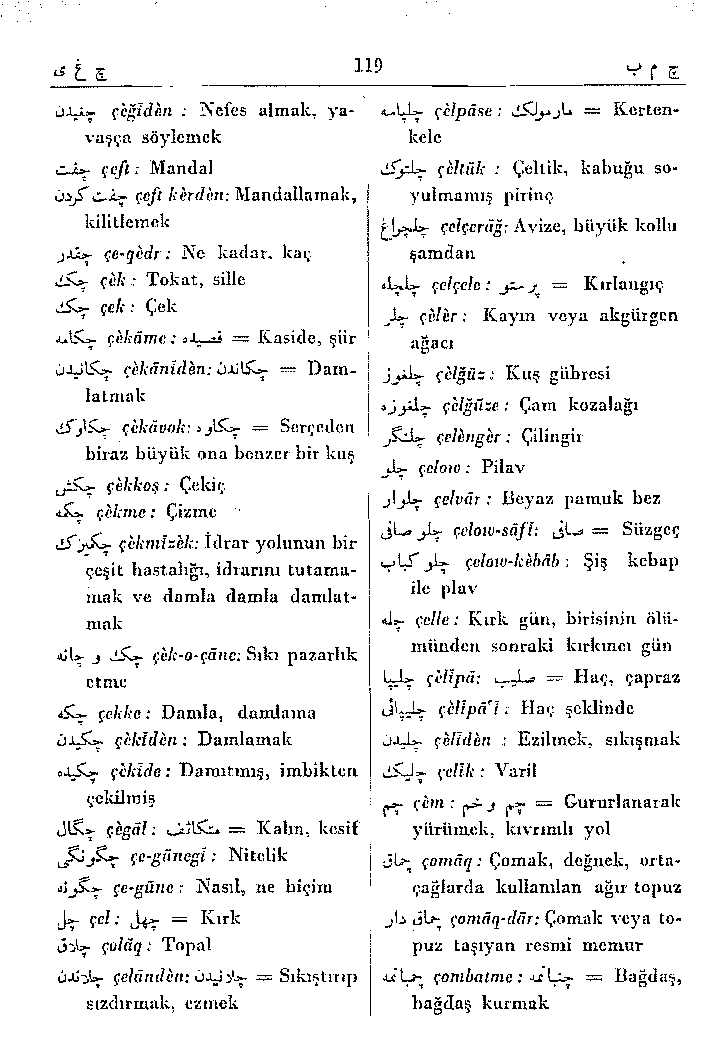 چ غ ی 119 چ م ب
چغیدن çèğîdèn : Nefes almak, ya-
vaşça söylemek
چفت çeft : Mandal
چفت کردن çeft kèrdèn: Mandallamak,
kilitlemek
چقدر çe-qèdr : Ne kadar, kaç
چک çèk : Tokat, sille
چک çek : Çek
چکامه çèkâme : قصیده = Kaside, şiir
چکانیدن çèkânîdèn: چکاندن = Dam-
latmak
چکاوک çèkâvok: چکاوه = Serçeden
biraz büyük ona benzer bir kuş
چکش çèkkoş : Çekiç
چکمه çèkme : Çizme
چکمیزک çèkmîzèk: İdrar yolunun bir
çeşit hastalığı, idrarını tutama-
mak ve damla damla damlat-
mak
چک و چانه çèk-o-çâne: Sıkı pazarlık
etme
چکه çekke : Damla, damlama
چکیدن çèkîdèn : Damlamak
چکیده çèkîde : Damıtmış, imbikten
çekilmiş
چگال çègâl : متکاثف = Kalın, kesif
چگونگی çe-gûnegî : Nitelik
چگونه çe-gûne : Nasıl, ne biçim
چل çel : چهل = Kırk
چلاق çolâq : Topal
چلاندن çelândèn: چلانیدن = Sıkıştırıp
sızdırmak, ezmek
چلپاسه çèlpâse : مارمولک = Kerten-
kele
چلتوک çèltûk : Çeltik, kabuğu so-
yulmamış pirinç
چلچراغ çelçerâğ: Avize, büyük kollu
şamdan
چلچله çelçele : پرستو = Kırlangıç
چلر çèlèr : Kayın veya akgürgen
ağacı
چلغوز çèlğûz : Kuş gübresi
چلغوزه çèlğûze : Çam kozalağı
چلنگر çelèngèr : Çilingir
چلو çelow : Pilav
چلوار çelvâr : Beyaz pamuk bez
چلو صافی çelow-sâfî: صافی = Süzgeç
چلو کباب çelow-kèbâb : Şiş kebap
ile plav
چله çelle : Kırk gün, birisinin ölü-
münden sonraki kırkıncı gün
چلیپا çèlîpâ: صلیب = Haç, çapraz
چلیپائی çèlîpâ'î : Haç şeklinde
چلیدن çèlîdèn : Ezilmek, sıkışmak
چلیک çelîk : Varil
چم çèm : چم و خم = Gururlanarak
yürümek, kıvrımlı yol
چماق çomâq : Çomak, değnek, orta-
çağlarda kullanılan ağır topuz
چماق دار çomâq-dâr: Çomak veya to-
puz taşıyan resmi memur
çombatme : = Bağdaş,
bağdaş kurmak